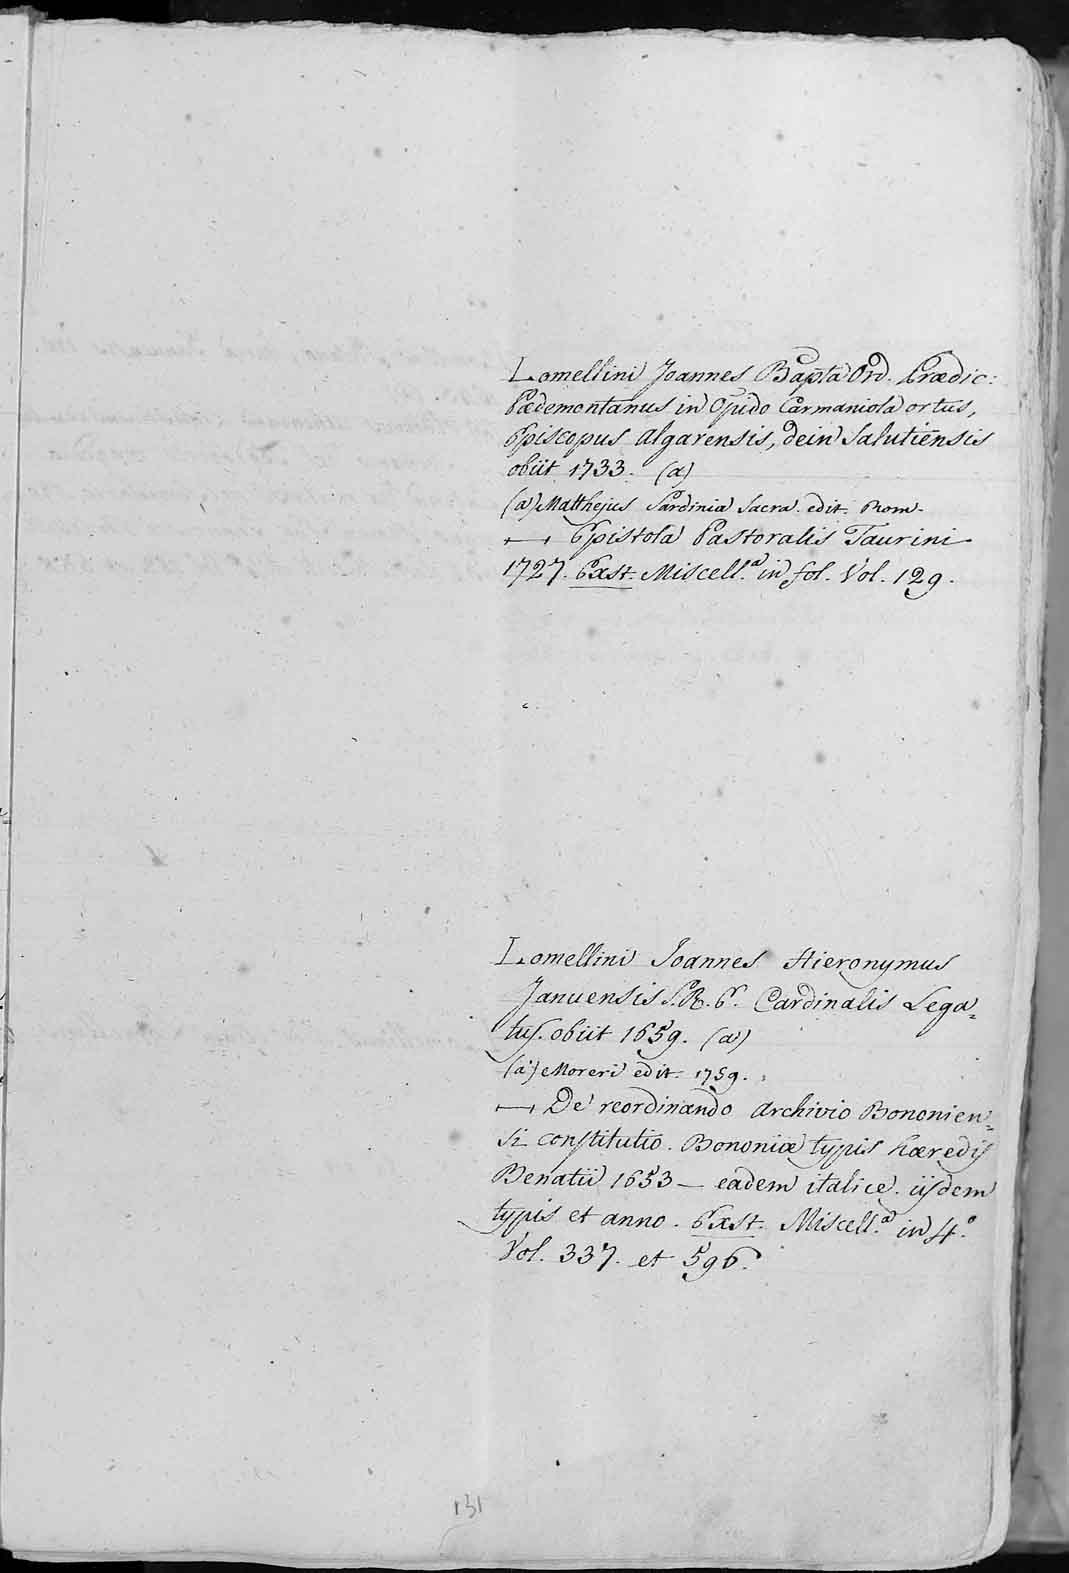 Lomellini Joannes Bapta Ord. Prædic:
Pædemontanus in Opido Carmaniola ortus,
Episcopus Algarensis, dein Salutiensis
obiit 1733. (a)
(a) Matthejus Sardinia Sacra. edit. Rom.
⟼ Epistola Pastoralis Taurini
1727. Exst. Miscell.a in fol. Vol. 129.
Lomellini Joannes Hieronymus
Januensis S.R.E. Cardinalis Lega=
tus. obiit 1659. (a)
(a) Moreri edit. 1759.
⟼ De reordinando Archivio Bononien=
si constitutio. Bononiæ typis hæredis
Benatii 1653 — eadem italice. iisdem
typis et anno. Exst. Miscell.a in 4.o
Vol. 337. et 596.
131